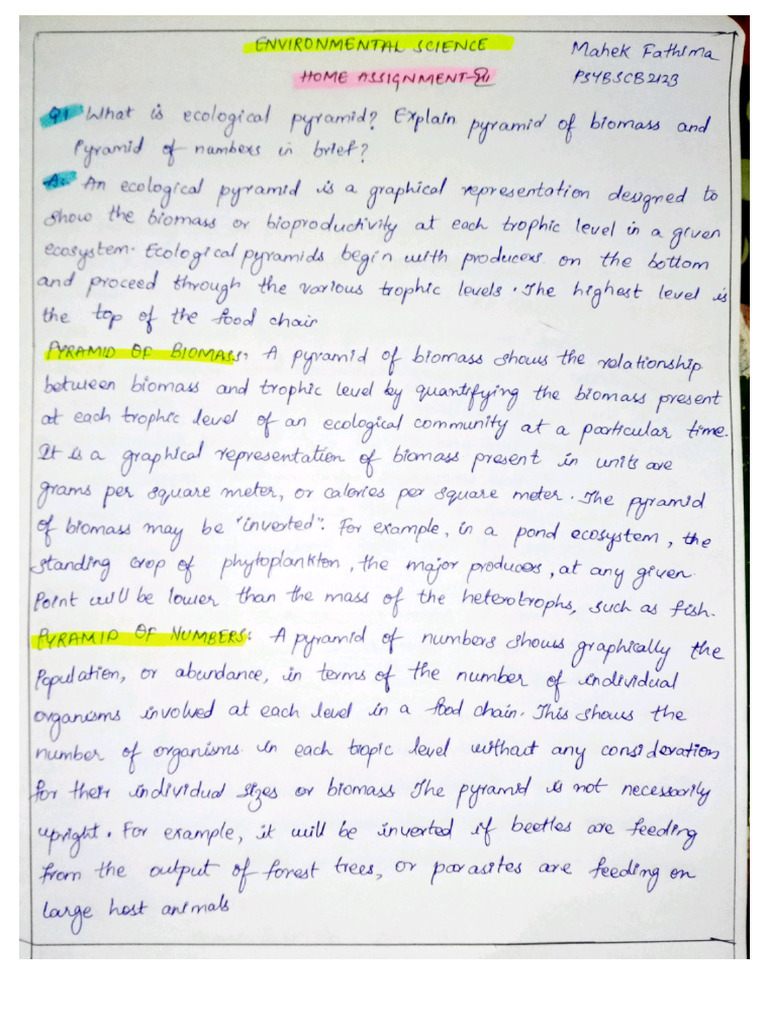 ENVIRONMENTAL SCIENCE
Mahek Fathima
HOME ASSIGNMENT-III
PSYBSCB2123
Q1 What is ecological pyramid? Explain pyramid of biomass and
Pyramid of numbers in brief?
A. An ecological pyramid is a graphical representation designed to
show the biomass or bioproductivity at each trophic level in a given
ecosystem. Ecological pyramids begin with producers on the bottom
and proceed through the various trophic levels. The highest level is
the top of the food chair
PYRAMID OF BIOMASS: A pyramid of biomass shows the relationship
between biomass and trophic level by quantifying the biomass present
at each trophic level of an ecological community at a particular time.
It is a graphical representation of biomass present in units are
grams per square meter, or calories per square meter. The pyramid
of biomass may be "inverted". For example, in a pond ecosystem, the
standing crop of phytoplankton, the major producers, at any given
Point will be lower than the mass of the heterotrophs, such as fish.
PYRAMID OF NUMBERS: A pyramid of numbers shows graphically the
Population, or abundance, in terms of the number of individual
organisms involved at each level in a food chain. This shows the
number of organisms in each tropic level without any consideration
for their individual sizes or biomass The pyramid is not necessarily
upright. For example, it will be inverted if beetles are feeding
from the output of forest trees, or parasites are feeding on
large host animals